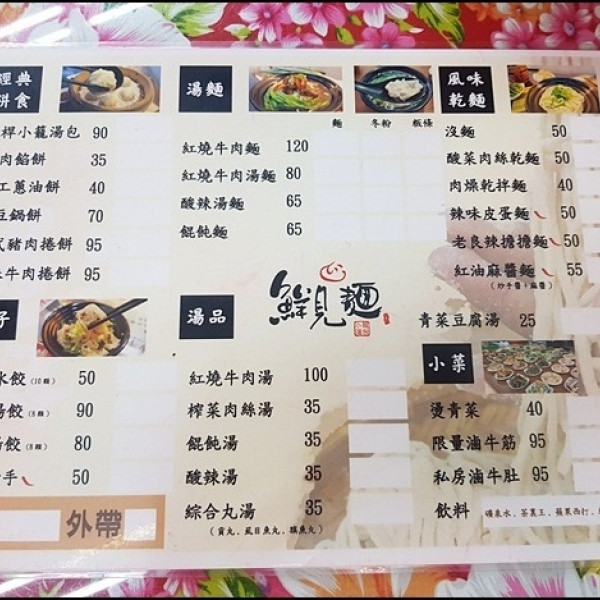 經典
拼食
桿小籠湯包 90
肉餡餅 35
工蔥油餅 40
豆鍋餅 70
式豬肉捲餅 95
牛肉捲餅 95
湯麵
麵 冬粉 粄條
紅燒牛肉麵 120
紅燒牛肉湯麵 80
酸辣湯麵 65
餛飩麵 65
風味
乾麵
沒麵 50
酸菜肉絲乾麵 50
肉燥乾拌麵 40
辣味皮蛋麵 50
老良辣擔擔麵 50
紅油麻醬麵 55
(炒手醬+麻醬)
青菜豆腐湯 25
鮮見麵
子
水餃(10顆) 50
湯餃(8顆) 90
餃(8顆) 80
手 50
外帶
湯品
紅燒牛肉湯 100
榨菜肉絲湯 35
餛飩湯 35
酸辣湯 35
綜合丸湯 35
(貢丸、虱目魚丸、旗魚丸)
小菜
燙青菜 40
限量滷牛筋 95
私房滷牛肚 95
飲料 礦泉水、茶裏王、蘋果西打、